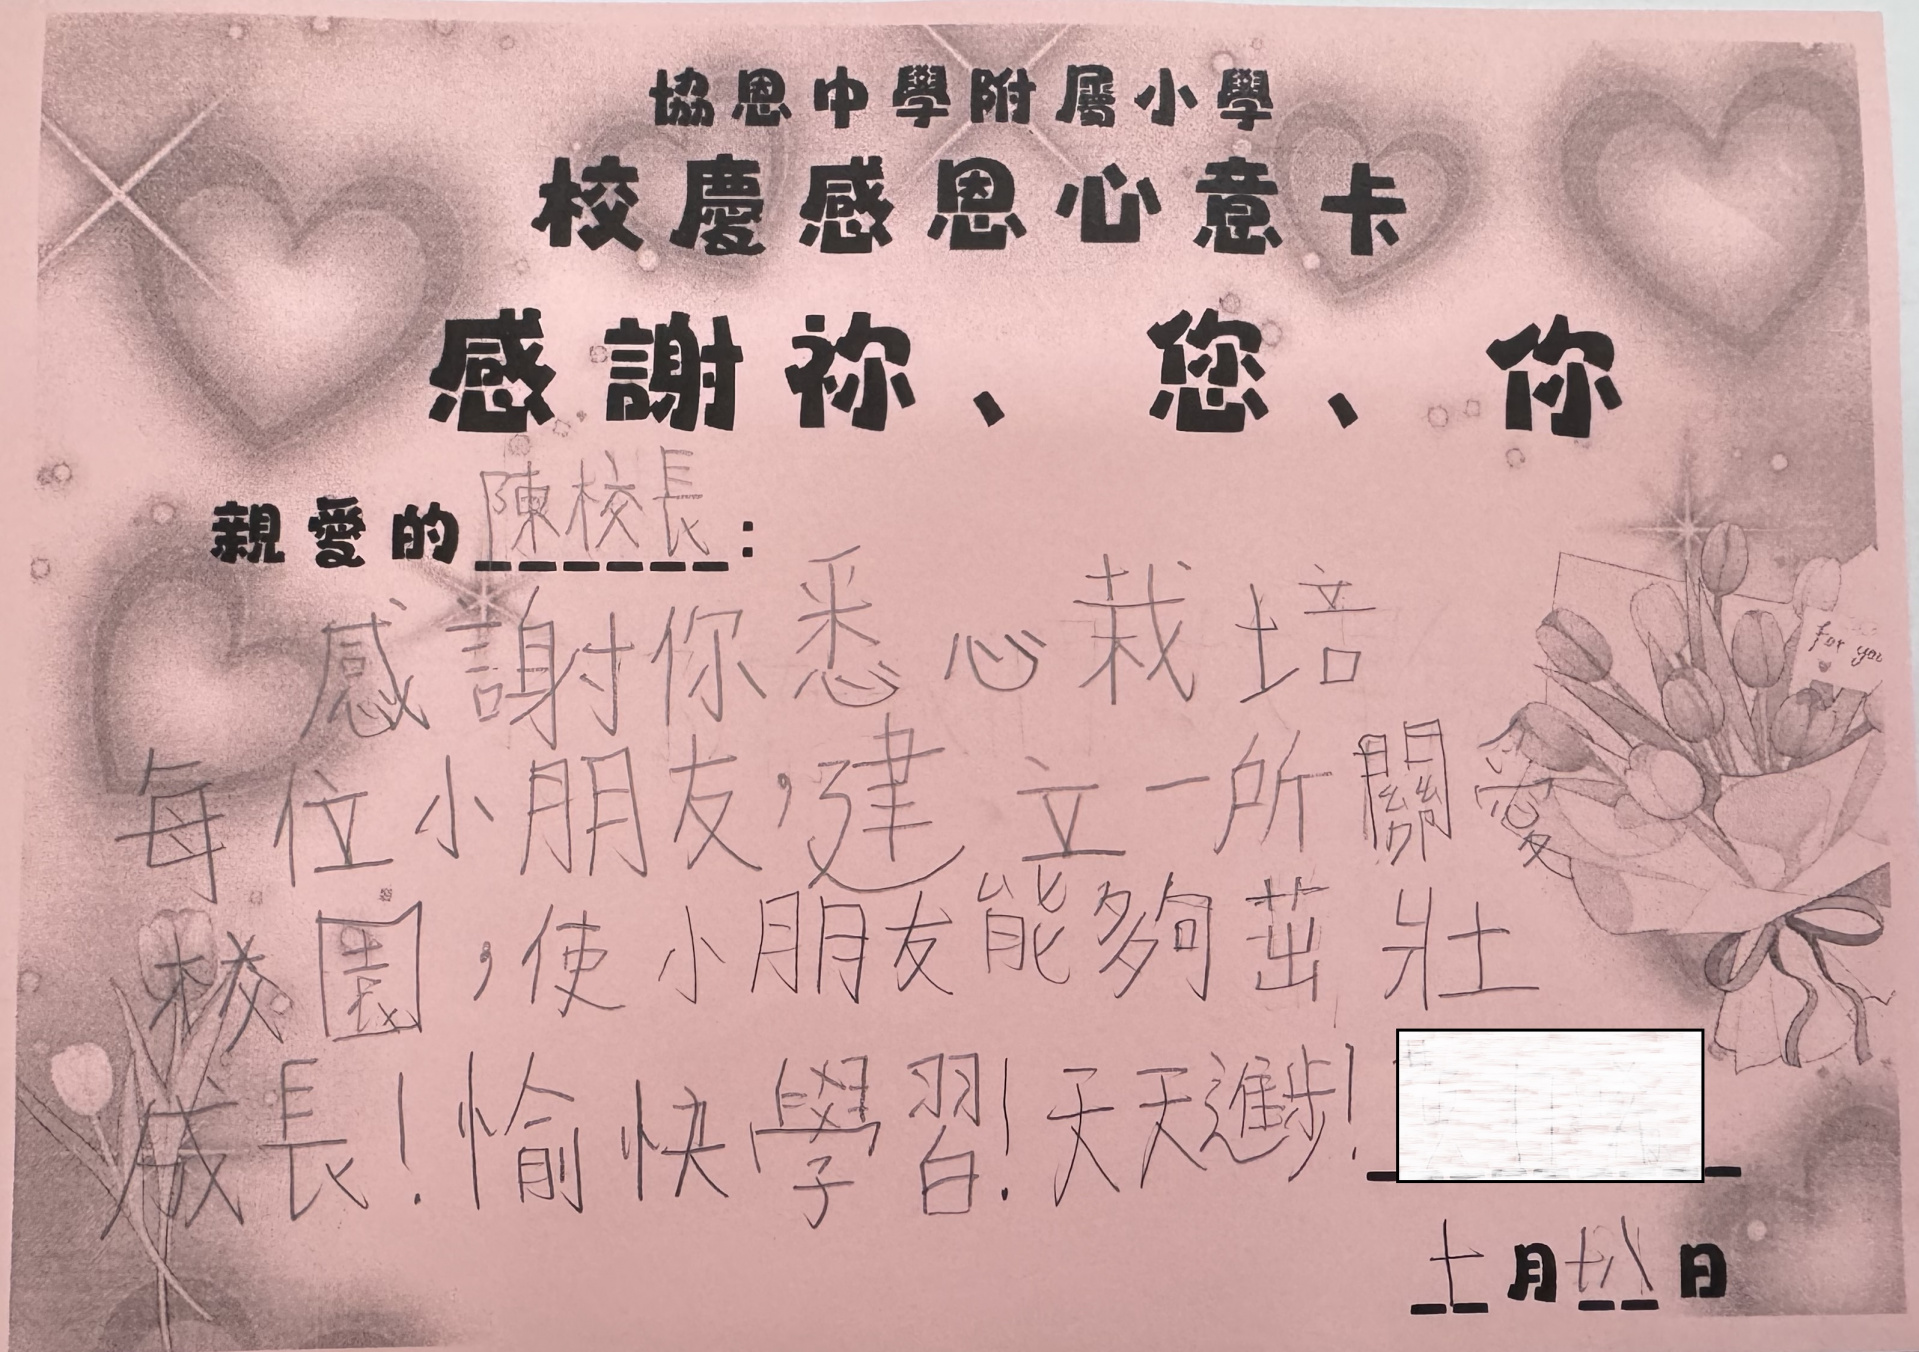 協恩中學附屬小學
校慶感恩心意卡
感謝祢、您、你
親愛的陳校長：
感謝你悉心栽培
每位小朋友，建立一所關愛
校園，使小朋友能夠茁壯
成長！愉快學習！天天進步！
十月十八日
for you